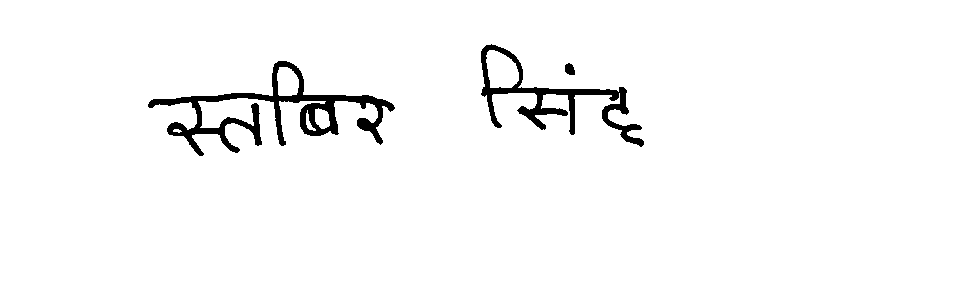 स्तबिर सिंह